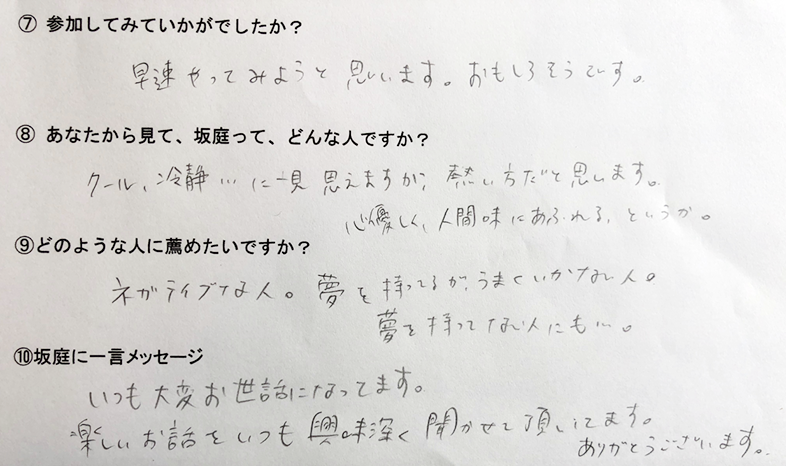 ⑦ 参加してみていかがでしたか？
早速やってみようと思います。おもしろそうです。
⑧ あなたから見て、坂庭って、どんな人ですか？
クール、冷静…に一見思えますが、熱い方だと思います。
心優しく、人間味にあふれる、というか。
⑨どのような人に薦めたいですか？
ネガティブな人。夢を持ってるが、うまくいかない人。
夢を持ってない人にも…。
⑩坂庭に一言メッセージ
いつも大変お世話になってます。
楽しいお話をいつも興味深く聞かせて頂いてます。
ありがとうございます。